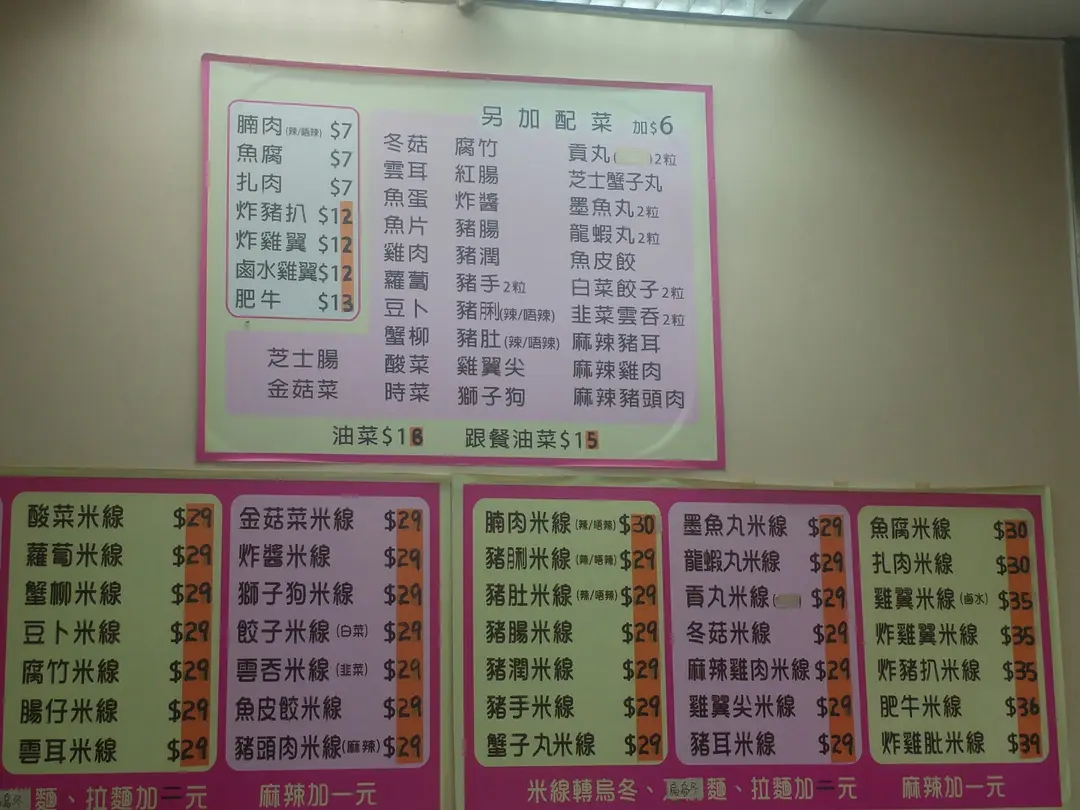 另加配菜 加$6
腩肉(辣/唔辣) $7
魚腐 $7
扎肉 $7
炸豬扒 $12
炸雞翼 $12
鹵水雞翼$12
肥牛 $13
芝士腸
金菇菜
冬菇
雲耳
魚蛋
魚片
雞肉
蘿蔔
豆卜
蟹柳
酸菜
時菜
腐竹
紅腸
炸醬
豬腸
豬潤
豬手2粒
豬脷(辣/唔辣)
豬肚(辣/唔辣)
雞翼尖
獅子狗
貢丸( )2粒
芝士蟹子丸
墨魚丸2粒
龍蝦丸2粒
魚皮餃
白菜餃子2粒
韭菜雲吞2粒
麻辣豬耳
麻辣雞肉
麻辣豬頭肉
油菜$18 跟餐油菜$15
酸菜米線 $29
蘿蔔米線 $29
蟹柳米線 $29
豆卜米線 $29
腐竹米線 $29
腸仔米線 $29
雲耳米線 $29
金菇菜米線 $29
炸醬米線 $29
獅子狗米線 $29
餃子米線(白菜) $29
雲吞米線(韭菜) $29
魚皮餃米線 $29
豬頭肉米線(麻辣) $29
麵、拉麵加二元 麻辣加一元
腩肉米線(辣/唔辣) $30
豬脷米線(辣/唔辣) $29
豬肚米線(辣/唔辣) $29
豬腸米線 $29
豬潤米線 $29
豬手米線 $29
蟹子丸米線 $29
墨魚丸米線 $29
龍蝦丸米線 $29
貢丸米線( ) $29
冬菇米線 $29
麻辣雞肉米線 $29
雞翼尖米線 $29
豬耳米線 $29
魚腐米線 $30
扎肉米線 $30
雞翼米線(鹵水) $35
炸雞翼米線 $35
炸豬扒米線 $35
肥牛米線 $36
炸雞肶米線 $39
米線轉烏冬、 麵、拉麵加二元 麻辣加一元